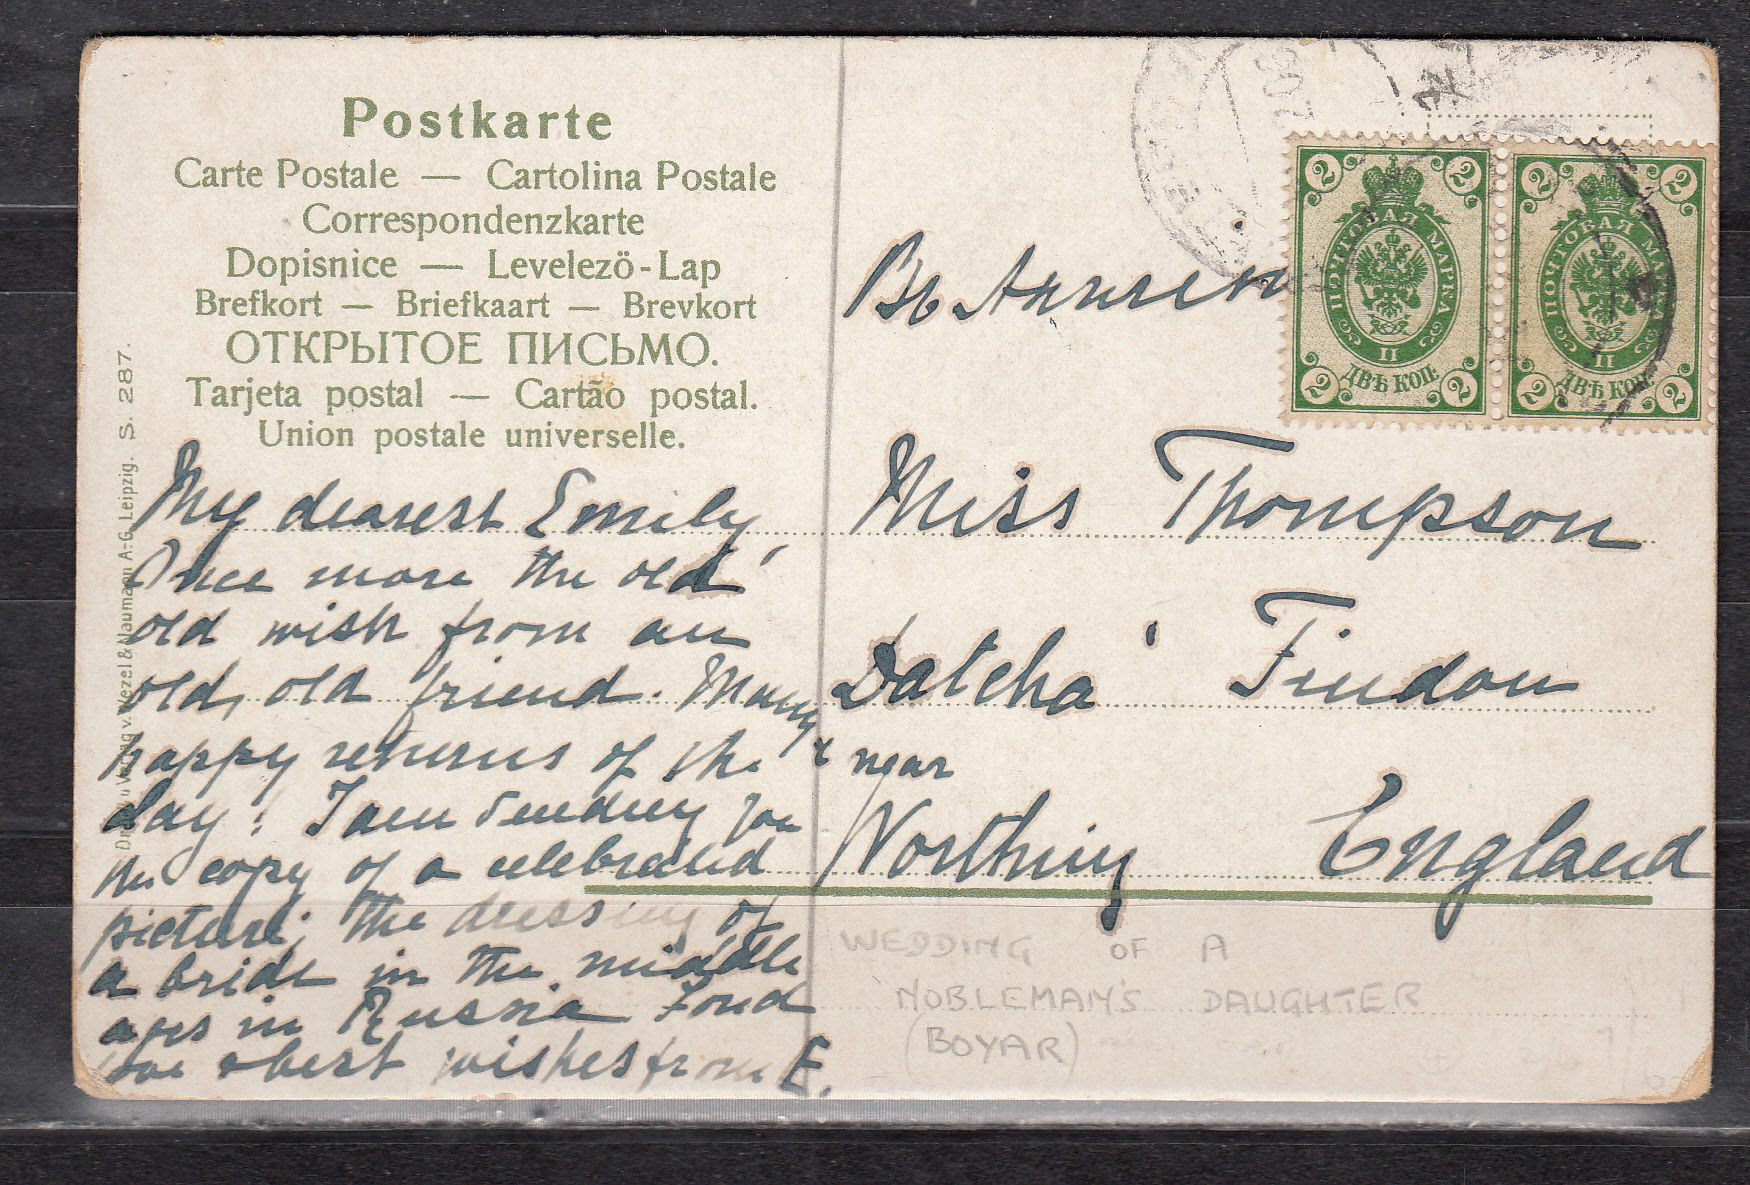 Postkarte
Carte Postale — Cartolina Postale
Correspondenzkarte
Dopisnice — Levelezö-Lap
Brefkort — Briefkaart — Brevkort
ОТКРЫТОЕ ПИСЬМО.
Tarjeta postal — Cartão postal.
Union postale universelle.
Druck u. Verlag v. Wezel & Naumann A-G. Leipzig. S. 287.
My dearest Emily,
Once more the old
old wish from an
old, old friend. Many
happy returns of the
day! I am sending you
the copy of a celebrated
picture, the dressing of
a bride in the middle
ages in Russia Fond
love & best wishes from E.
907
2 2 2 2
ПОЧТОВАЯ МАРКА
II
ДВѢ КОП.
2 2 2 2
ПОЧТОВАЯ МАРКА
II
ДВѢ КОП.
Въ
Miss Thompson
Datcha' Findon
near
Worthing England
WEDDING OF A
NOBLEMAN'S DAUGHTER
(BOYAR)